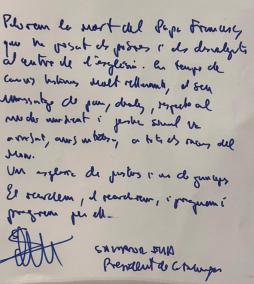 Plorem la mort del Papa Francesc
que ha posat els pobres i els desvalguts
al centre de l'església. En temps de
canvis històrics molt rellevants, el seu
missatge de pau, diàleg, respecte al
medi ambient i justícia social va
arribar, amb, a tots els racons del
món.
Un de justos i no de
El recordem, el recordarem, i preguem i
pregarem per ell.
SALVADOR ILLA
President de Catalunya